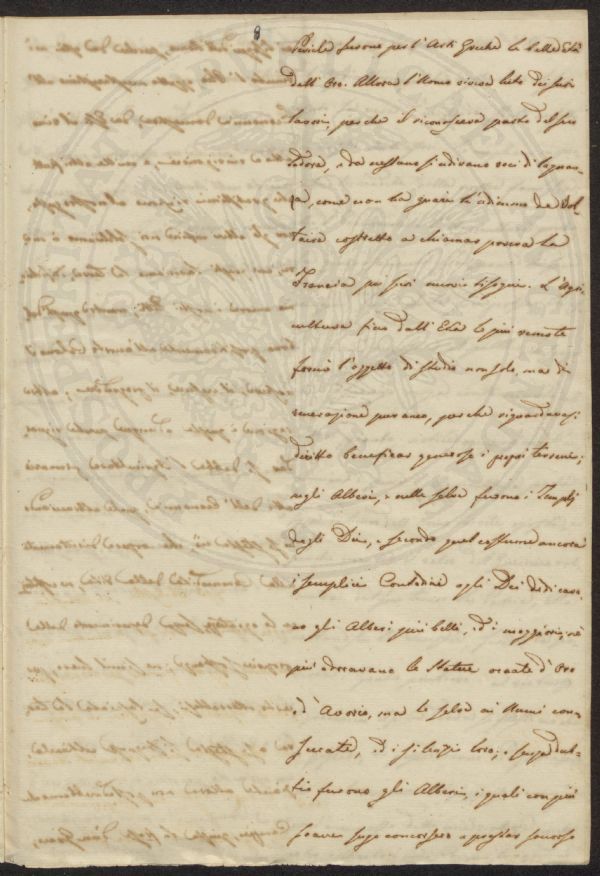 8
Pericle furono per l'Arti Greche la bella Età
dell'Oro. Allora l'Uomo viveva lieto dei suoi
lavori, perchè il riconosceva parto del suo
sudore, e da nessuno si udivano voci di lagnan-
za, come non ha guari le udimmo da Vol-
taire costretto a chiamar povera la
Francia pei suoi nuovi bisogni. L'Agri-
cultura fino dall'Età le più remote
formò l'oggetto di studio non solo, ma di
venerazione pur anco, perchè riguardavasi
diritto beneficar generose i propri terreni;
negli Alberi, e nelle selve furono i Templj
degli Dei, e secondo quel costume ancora
i semplici Contadini agli Dei dedicava-
no gli Alberi più belli, ed i maggiori, nè
più adoravano le Statue ornate d'Oro
e d'Avorio, ma le selve ai Numi con-
secrate, ed i silenzj loro; e senza dub-
bio furono gli Alberi, i quali con più
soave sugo concorsero a prestar soccorso